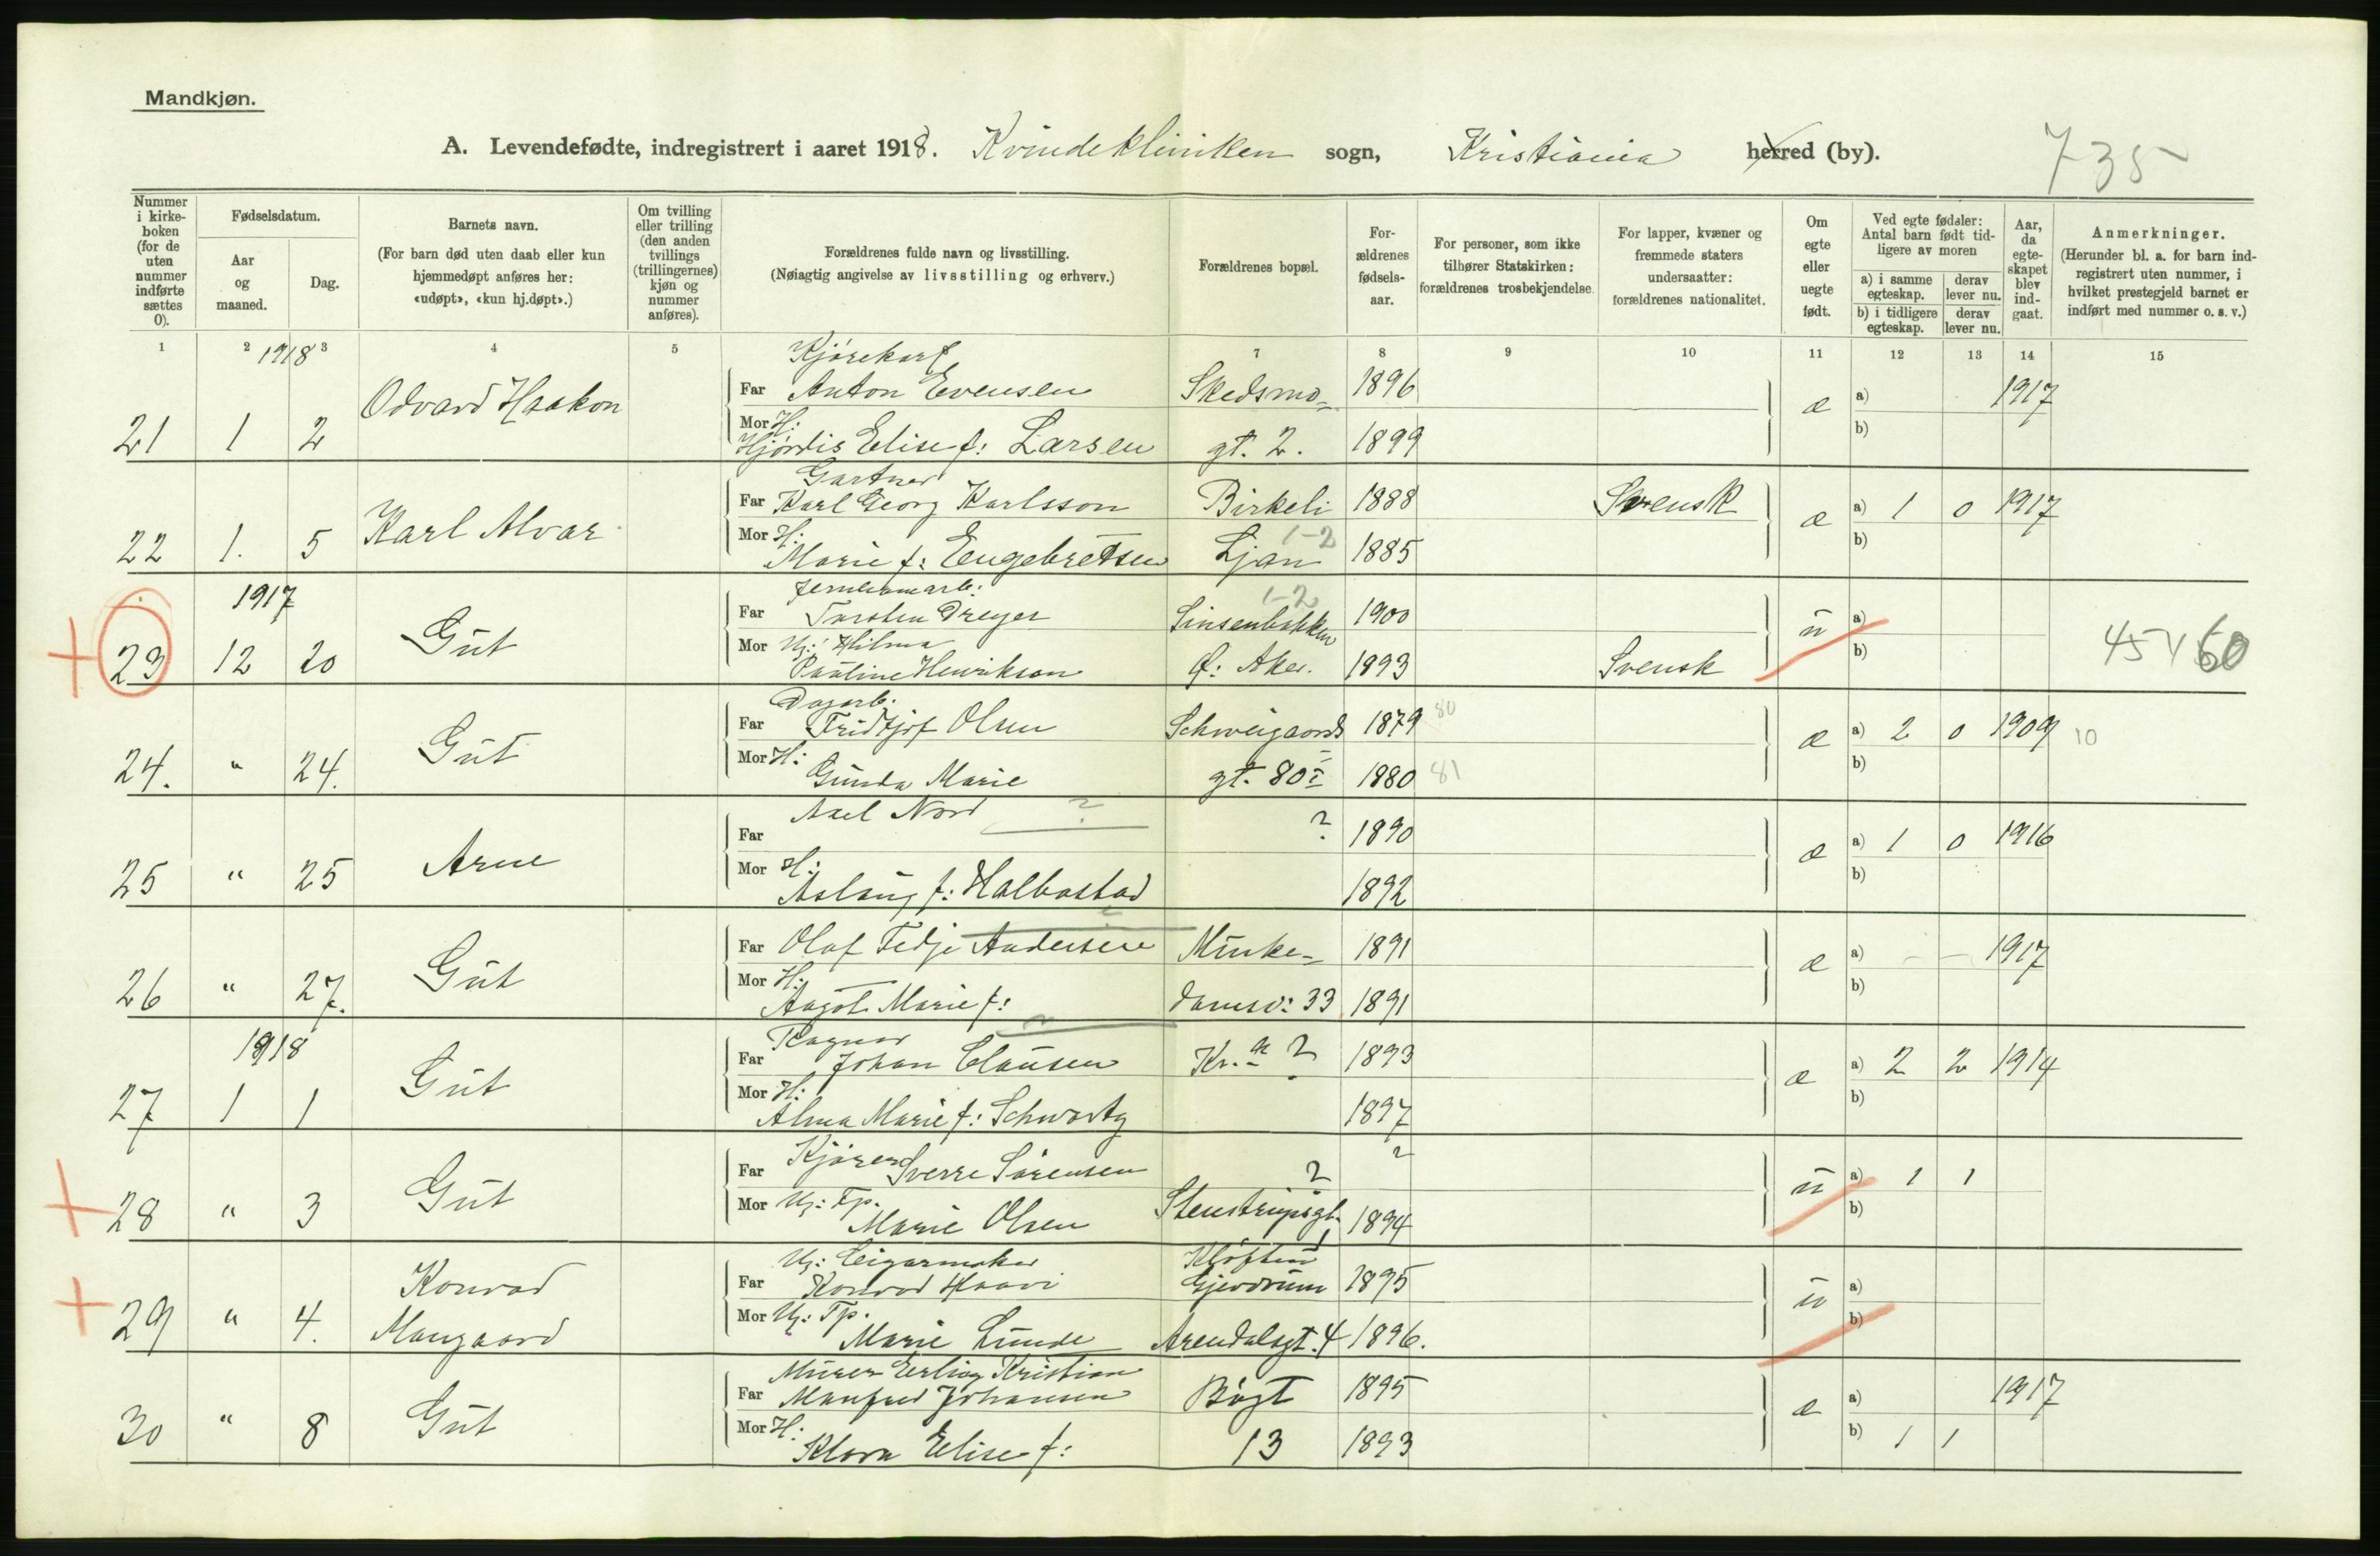 Mandkjøn.
A. Levendefødte, indregistrert i aaret 1918. Kvindekliniken sogn, Kristiania herred (by). 735
Nummer i kirkeboken (for de uten nummer indførte sættes 0).
Fødselsdatum.
Aar og maaned.
Dag.
Barnets navn.
(For barn død uten daab eller kun hjemmedøpt anføres her: «udøpt», «kun hj.døpt».)
Om tvilling eller trilling (den anden tvillings (trillingernes) kjøn og nummer anføres).
Forældrenes fulde navn og livsstilling.
(Nøiagtig angivelse av livsstilling og erhverv.)
Forældrenes bopæl.
Forældrenes fødselsaar.
For personer, som ikke tilhører Statskirken: forældrenes trosbekjendelse.
For lapper, kvæner og fremmede staters undersaatter: forældrenes nationalitet.
Om egte eller uegte født.
Ved egte fødsler: Antal barn født tidligere av moren
a) i samme egteskap. derav lever nu.
b) i tidligere egteskap. derav lever nu.
Aar, da egteskapet blev indgaat.
Anmerkninger.
(Herunder bl. a. for barn indregistrert uten nummer, i hvilket prestegjeld barnet er indført med nummer o. s. v.)
1 2 3 4 5 7 8 9 10 11 12 13 14 15
1918
Kjørekarl
21 1 2 Odvard Haakon Far Anton Evensen Skedsmo- 1896 æ a) 1917
Mor H: Hjørdis Elise f: Larsen gt. 2. 1899 b)
Gartner
22 1. 5 Karl Alvar Far Karl Georg Karlsson Birkeli 1888 Svensk æ a) 1 0 1917
Mor H: Marie f: Engebretsen Ljan 1-2 1885 b)
1917
1-2
23 12 20 Gut Far Torsten Dreyer Sinsenbakken 1900 u a)
Mor Ug: Hilma Pauline Henrikson Ø: Aker. 1893 Svensk b) 45 V 60
Dagarb.
24. " 24. Gut Far Fridtjof Olsen Schweigaards 1879 80 æ a) 2 0 1909 10
Mor H: Gunda Marie gt. 80 I 1880 81 b)
25 " 25 Arne Far Axel Nord ? ? 1890 æ a) 1 0 1916
Mor H: Aslaug f: Halbostad 1892 b)
26 " 27. Gut Far Olaf Tedje Andersen Munke- 1891 æ a) - - 1917
Mor H: Aagot Marie f: damsv: 33 1891 b)
1918
27 1 1 Gut Far Ragnar Johan Clausen Kr.a ? 1893 æ a) 2 2 1914
Mor H: Alma Marie f: Schwartz 1897 b)
28 " 3 Gut Far Kjører Sverre Sørensen ? ? u a) 1 1
Mor Ug: Tp. Marie Olsen Stenstrupsgt. 1894 b)
Ug: Cigarmaker Kløften
29 " 4. Konrad Far Konrad Haavi Gjerdrum 1895 u a)
Maugaard Mor Ug: Tp. Marie Lunde Arendalsgt. 4 1896. b)
Murer Erling Kristian
30 " 8 Gut Far Manfred Johansen Bøgt 1895 æ a) 1917
Mor H: Klara Elise f: 13 1893 b) 1 1